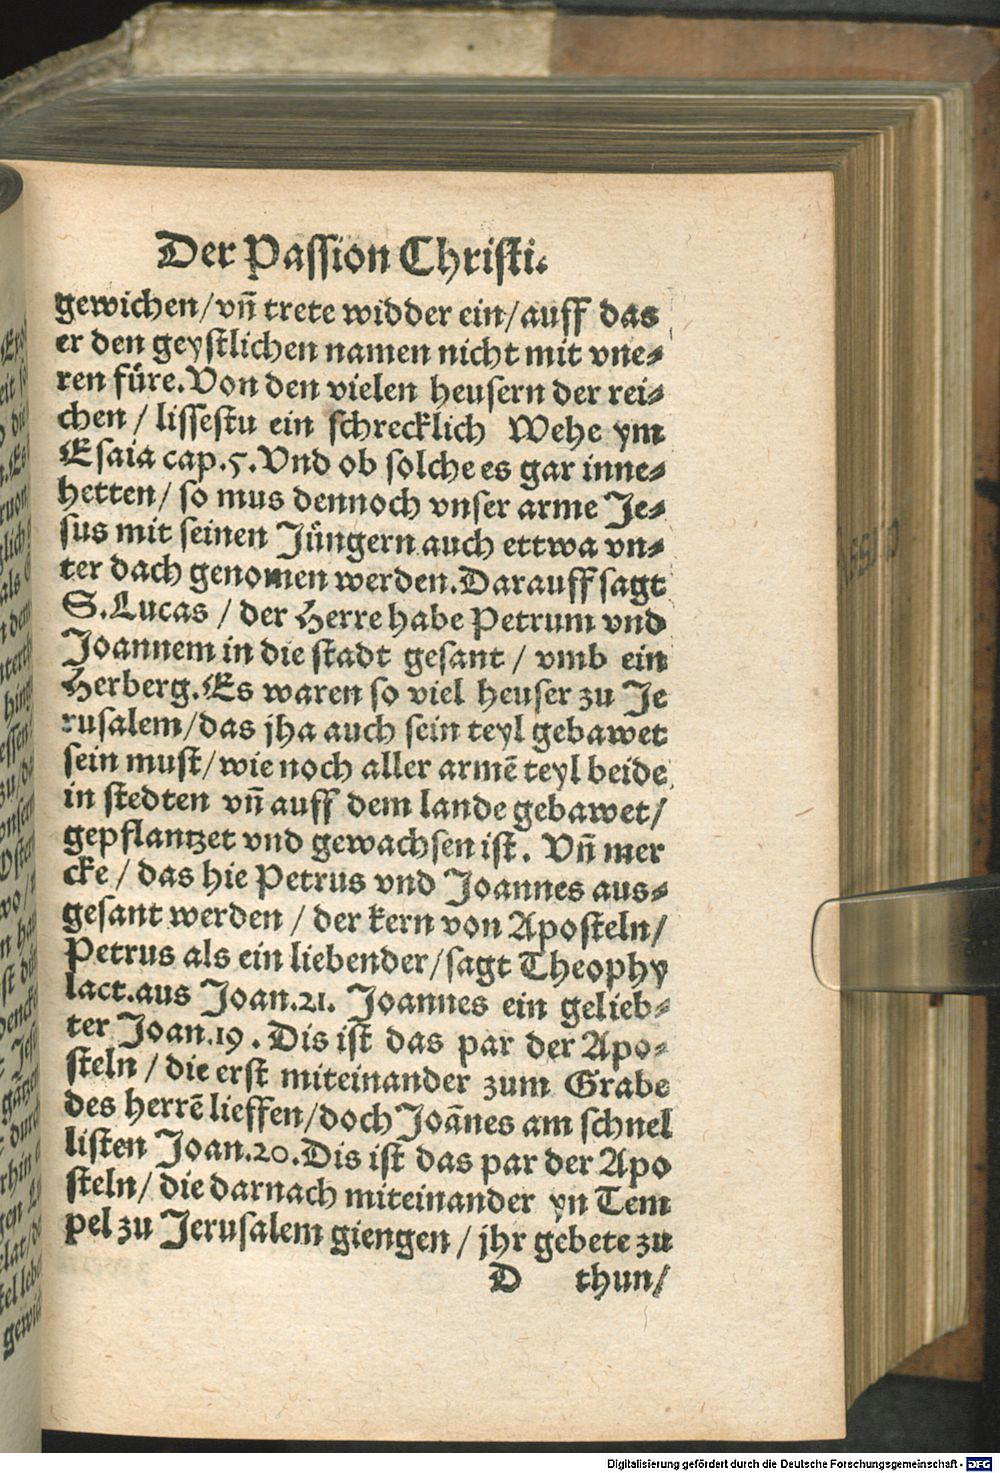 Der Passion Christi.
gewichen/vñ trete widder ein/auff das
er den geystlichen namen nicht mit vne⸗
ren füre.Von den vielen heusern der rei⸗
chen / lissestu ein schrecklich Wehe ym
Esaia cap.5.Vnd ob solche es gar inne⸗
hetten/ so mus dennoch vnser arme Je⸗
sus mit seinen Jüngern auch ettwa vn⸗
ter dach genomen werden.Darauff sagt
S.Lucas / der Herre habe Petrum vnd
Joannem in die stadt gesant / vmb ein
Herberg.Es waren so viel heuser zu Je
rusalem/das jha auch sein teyl gebawet
sein must/wie noch aller armē teyl beide
in stedten vñ auff dem lande gebawet/
gepflantzet vnd gewachsen ist. Vñ mer
cke / das hie Petrus vnd Joannes aus⸗
gesant werden / der kern von Aposteln/
Petrus als ein liebender/sagt Theophy
lact.aus Joan.21. Joannes ein gelieb⸗
ter Joan.19. Dis ist das par der Apo⸗
steln / die erst miteinander zum Grabe
des herrē lieffen/doch Joānes am schnel
listen Joan.20.Dis ist das par der Apo
steln/ die darnach miteinander yn Tem
pel zu Jerusalem giengen / jhr gebete zu
D thun/
Digitalisierung gefördert durch die Deutsche Forschungsgemeinschaft - DFG